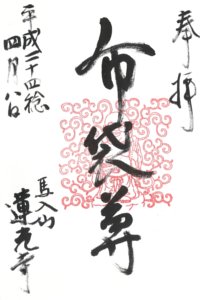 奉拝
布袋尊
平成二十四稔
四月八日
馬入山
蓮光寺